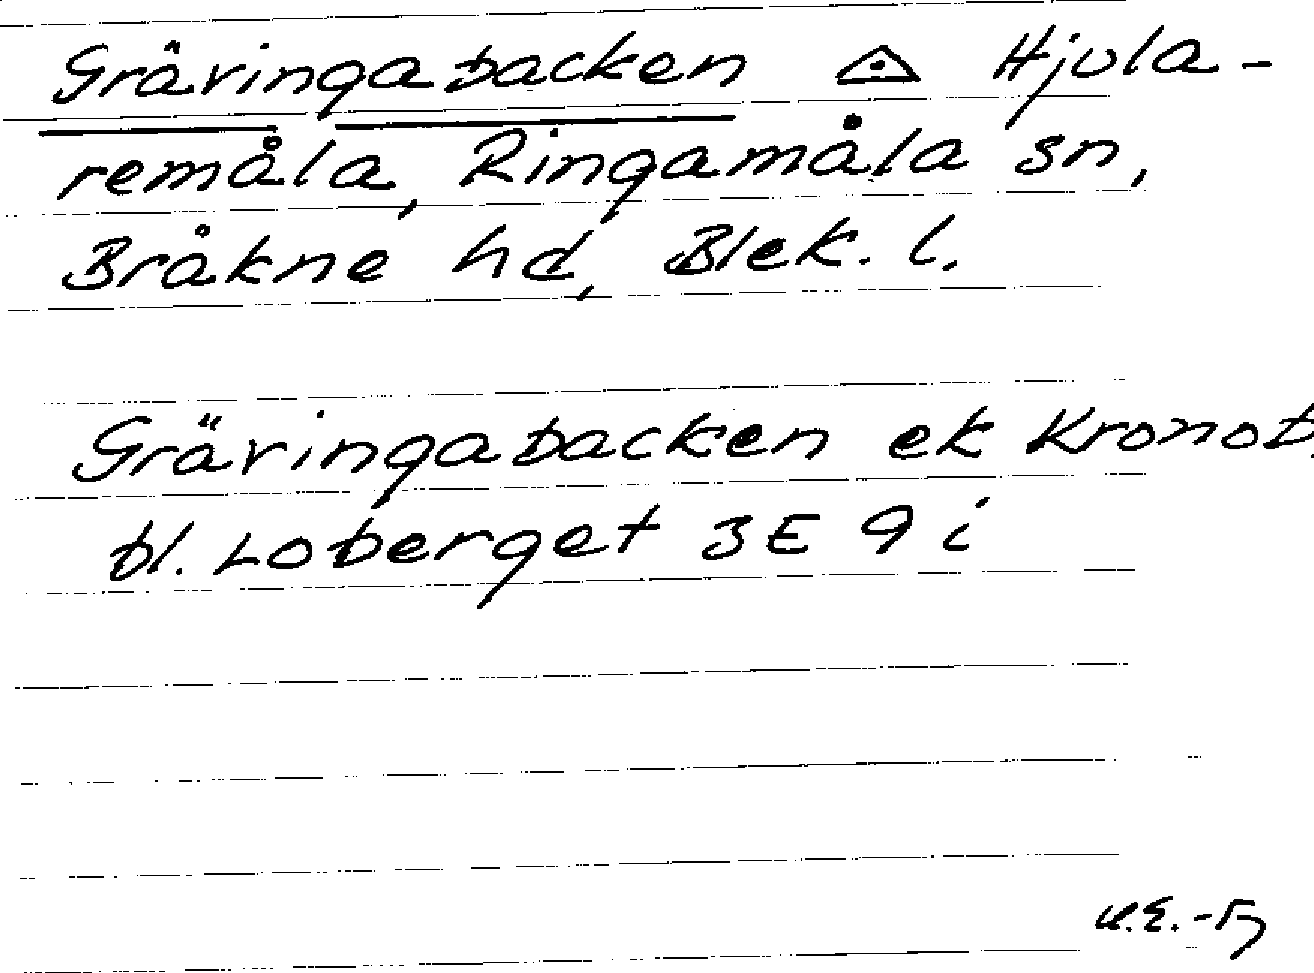 Gräringabacken Hjula-
remåla, Ringamåla sn,
Bråkne hd, Blek. l.
Gräringabacken ek Kronob.
bl. Loberget 3E 9 i